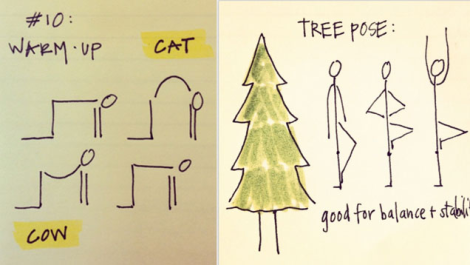 #10:
WARM-UP
CAT
COW
TREE POSE:
good for balance + stabili